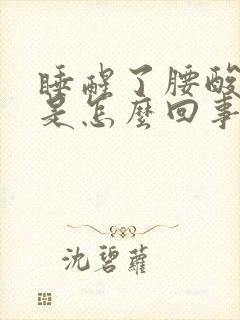 睡醒了腰酸
是怎麼回事
沈碧蘿